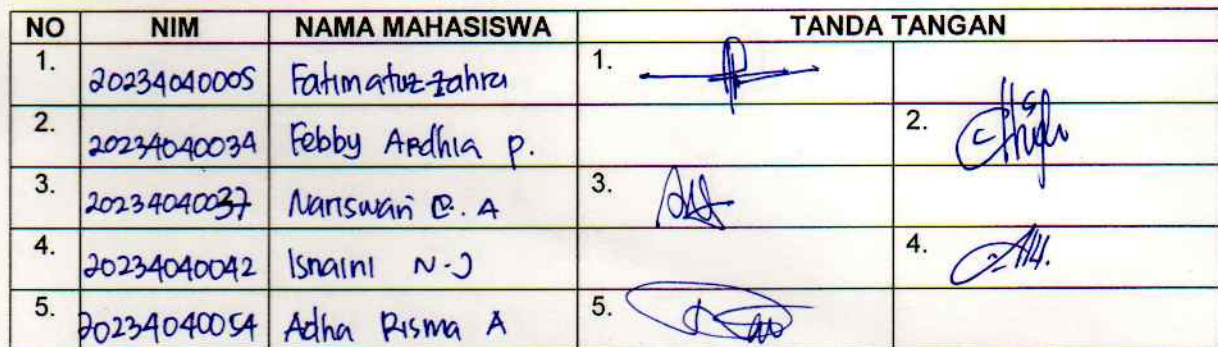 NO NIM NAMA MAHASISWA TANDA TANGAN
1. 20234040005 Fatimatuz Zahra 1.
2. 20234040034 Febby Ardhia P. 2.
3. 20234040037 Nariswari D. A 3.
4. 20234040042 Isnaini N.J 4.
5. 20234040054 Adha Risma A 5.